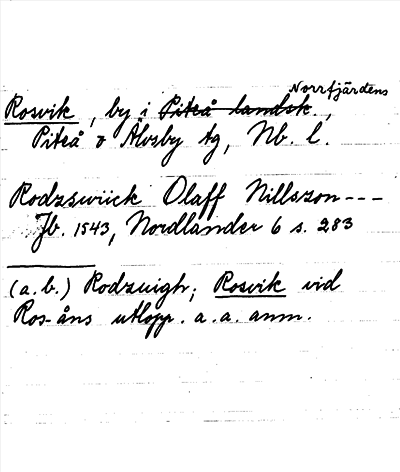 Norrfjärdens
Rosvik, by i Piteå landsk.,
Piteå o Älvsby tg, Nb. l.
Rodzswiick Olaff Nillszon ---
Jb. 1543, Nordlander 6 s. 283
(a.b.) Rodzuigh; Rosvik vid
Ros-åns utlopp. a.a. anm.